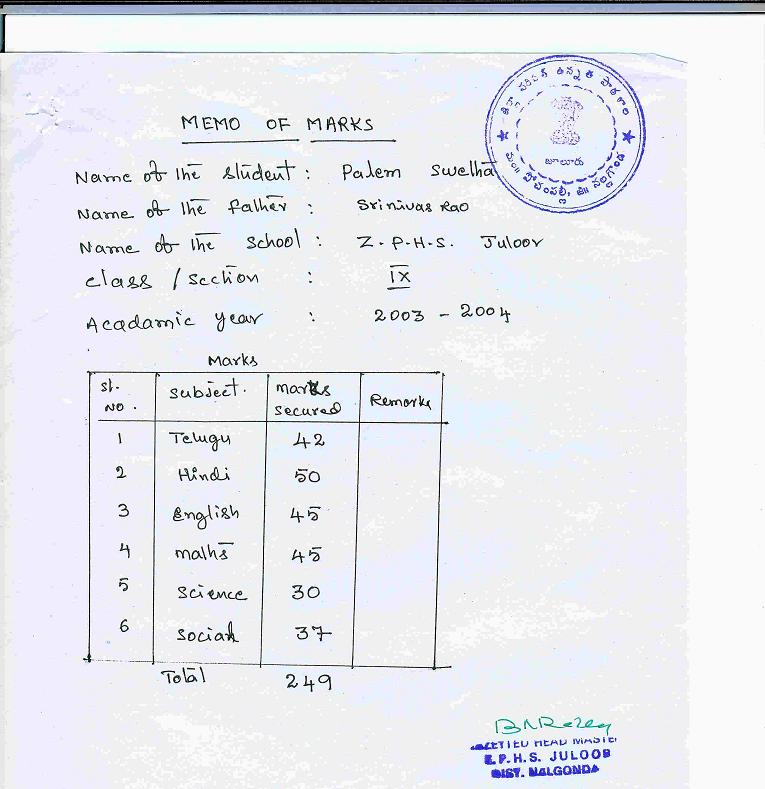 MEMO OF MARKS
Name of the student : Palem Swetha
Name of the father : Srinivas Rao
Name of the school : Z.P.H.S. Juloor
class / section : IX
Acadamic year : 2003 - 2004
Marks
Sl. NO. subject. marks secured Remarks
1 Telugu 42
2 Hindi 50
3 English 45
4 maths 45
5 science 30
6 social 37
Total 249
జిల్లా పరిషత్ ఉన్నత పాఠశాల
జూలూరు
మం॥ పోచంపల్లి, జి॥ నల్గొండ
HEAD MASTER
Z.P.H.S. JULOOR
DIST. NALGONDA